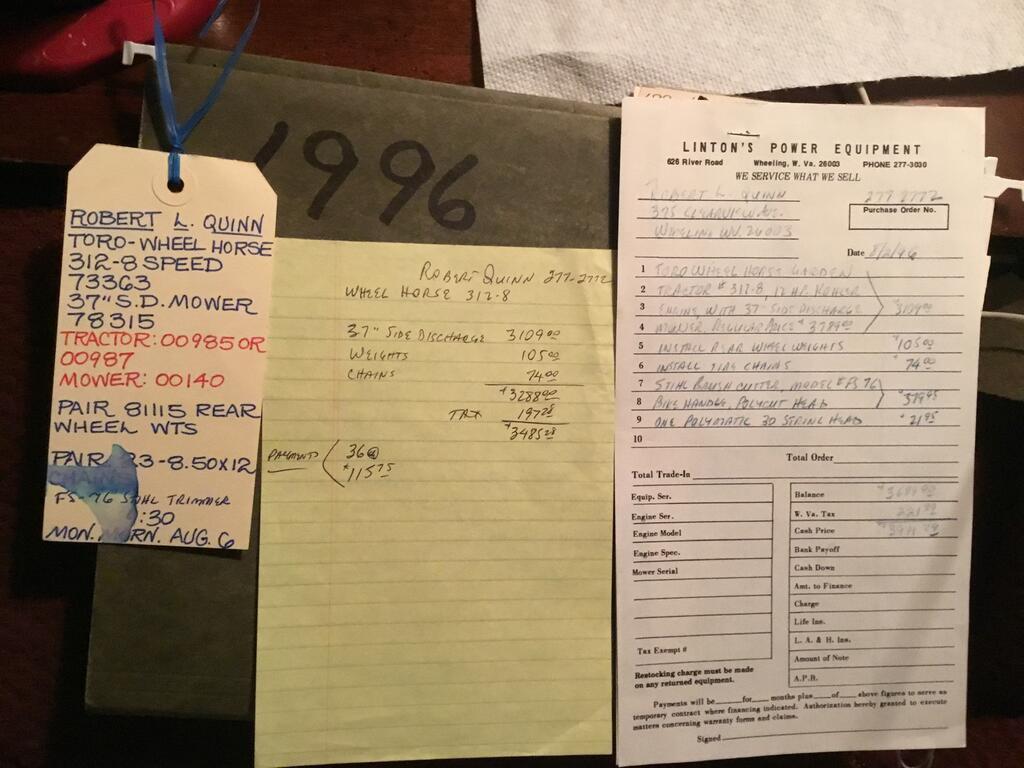 1996
ROBERT L. QUINN
TORO-WHEEL HORSE
312-8 SPEED
73363
37" S.D. MOWER
78315
TRACTOR: 00985 OR
00987
MOWER: 00140
PAIR 81115 REAR
WHEEL WTS
PAIR 23-8.50X12
CHAINS
FS-76 STIHL TRIMMER
:30
MON. MORN. AUG. 6
ROBERT QUINN 277-2772
WHEEL HORSE 312-8
37" SIDE DISCHARGE 3109.00
WEIGHTS 105.00
CHAINS 74.00
$3288.00
TAX 197.28
$3485.28
PAYMENTS 36 @
$115.75
LINTON'S POWER EQUIPMENT
626 River Road Wheeling, W. Va. 26003 PHONE 277-3030
WE SERVICE WHAT WE SELL
ROBERT L. QUINN 277 2772
375 CLEARVIEW AVE.
WHEELING WV. 26003
Purchase Order No.
Date 8/2/96
1 TORO WHEEL HORSE GARDEN
2 TRACTOR # 312-8, 12 HP. KOHLER
3 ENGINE WITH 37" SIDE DISCHARGE $3109.00
4 MOWER, REGULAR PRICE $3789.00
5 INSTALL REAR WHEEL WEIGHTS $105.00
6 INSTALL TIRE CHAINS $74.00
7 STIHL BRUSH CUTTER, MODEL # FS 76
8 BIKE HANDLE, POLYCUT HEAD $379.95
9 ONE POLYMATIC 30 STRING HEAD $21.95
10
Total Order
Total Trade-In
Equip. Ser.
Engine Ser.
Engine Model
Engine Spec.
Mower Serial
Tax Exempt #
Balance
W. Va. Tax
Cash Price
Bank Payoff
Cash Down
Amt. to Finance
Charge
Life Ins.
L. A. & H. Ins.
Amount of Note
A.P.R.
Restocking charge must be made
on any returned equipment.
Payments will be for months plus of above figures to serve as
temporary contract where financing indicated. Authorization hereby granted to execute
matters concerning warranty forms and claims.
Signed